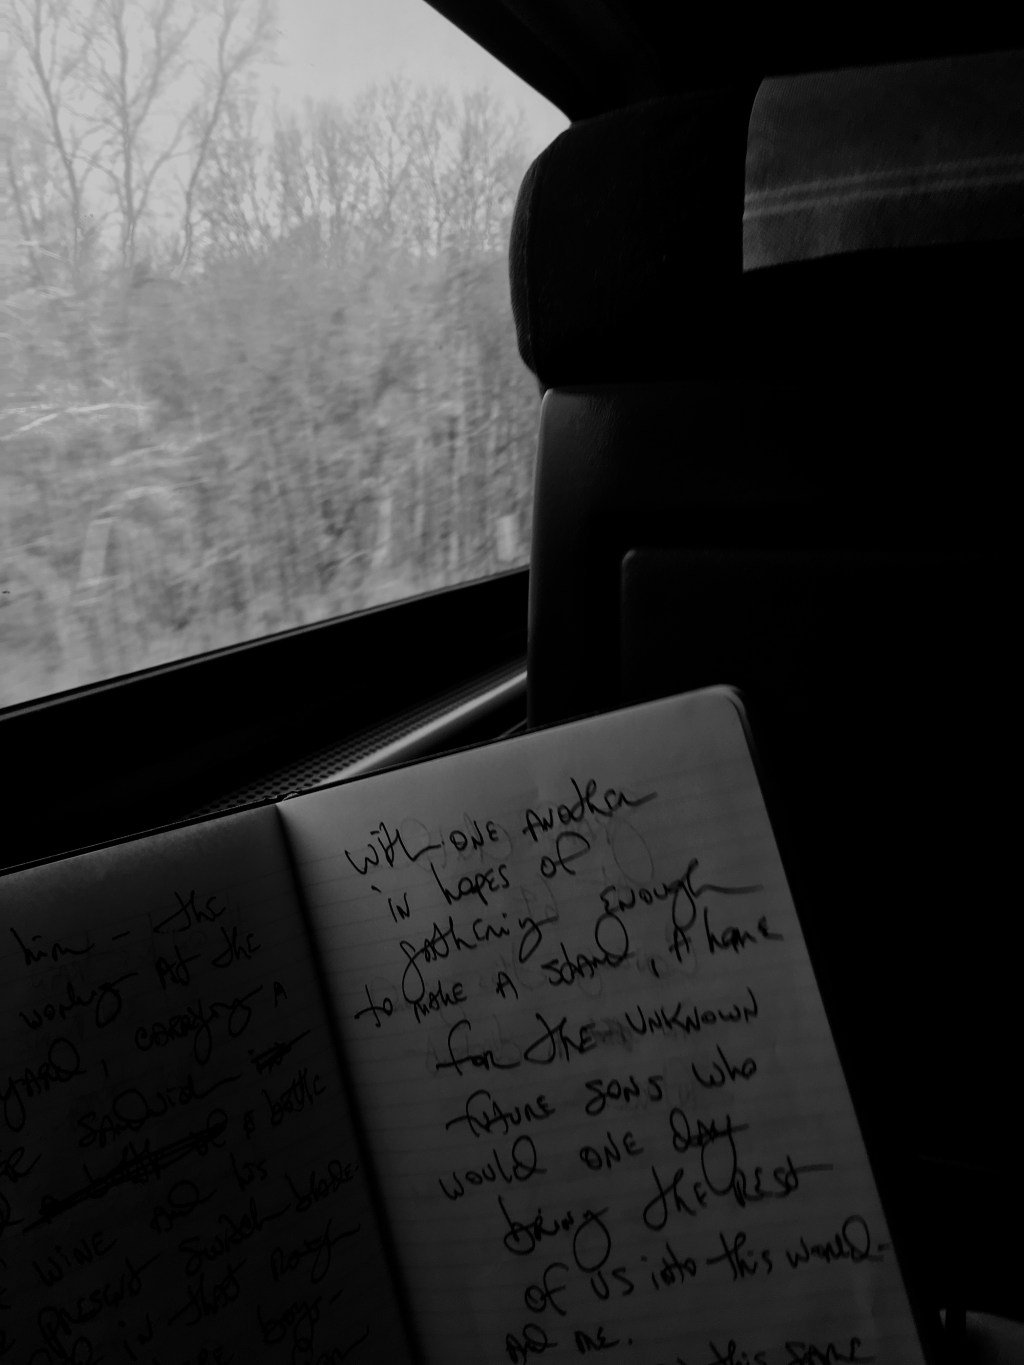 him - the
working At the
yard, carrying A
sandwich
& bottle
wine and his
present switch blade-
in that rough
boys-
with one Another
in hopes of
gathering enough
to make A stand, A home
for the unknown
future sons who
would one day
bring the rest
of us into this world-
And me.
this same